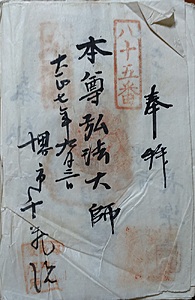 八十五番
奉拜
本尊弘法大師
大正七年九月三日
堺市十